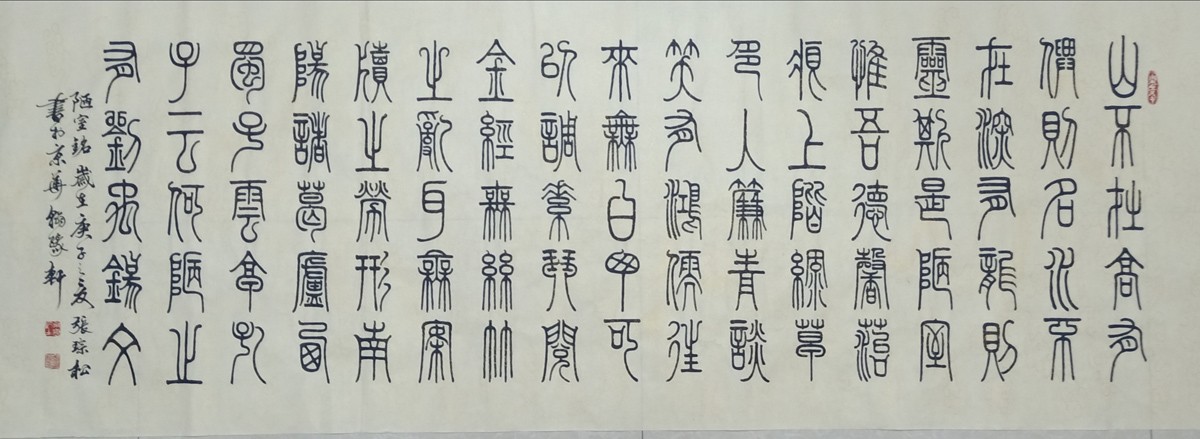 山不在高有
僊則名水不
在深有龍則
靈斯是陋室
惟吾德馨苔
痕上階綠草
色入簾青談
笑有鴻儒往
來無白丁可
以調素琴閱
金經無絲竹
之亂耳無案
牘之勞形南
陽諸葛廬西
蜀子雲亭孔
子云何陋之
有劉禹錫文
陋室銘歲在庚子之夏張琮松
書於京華軒